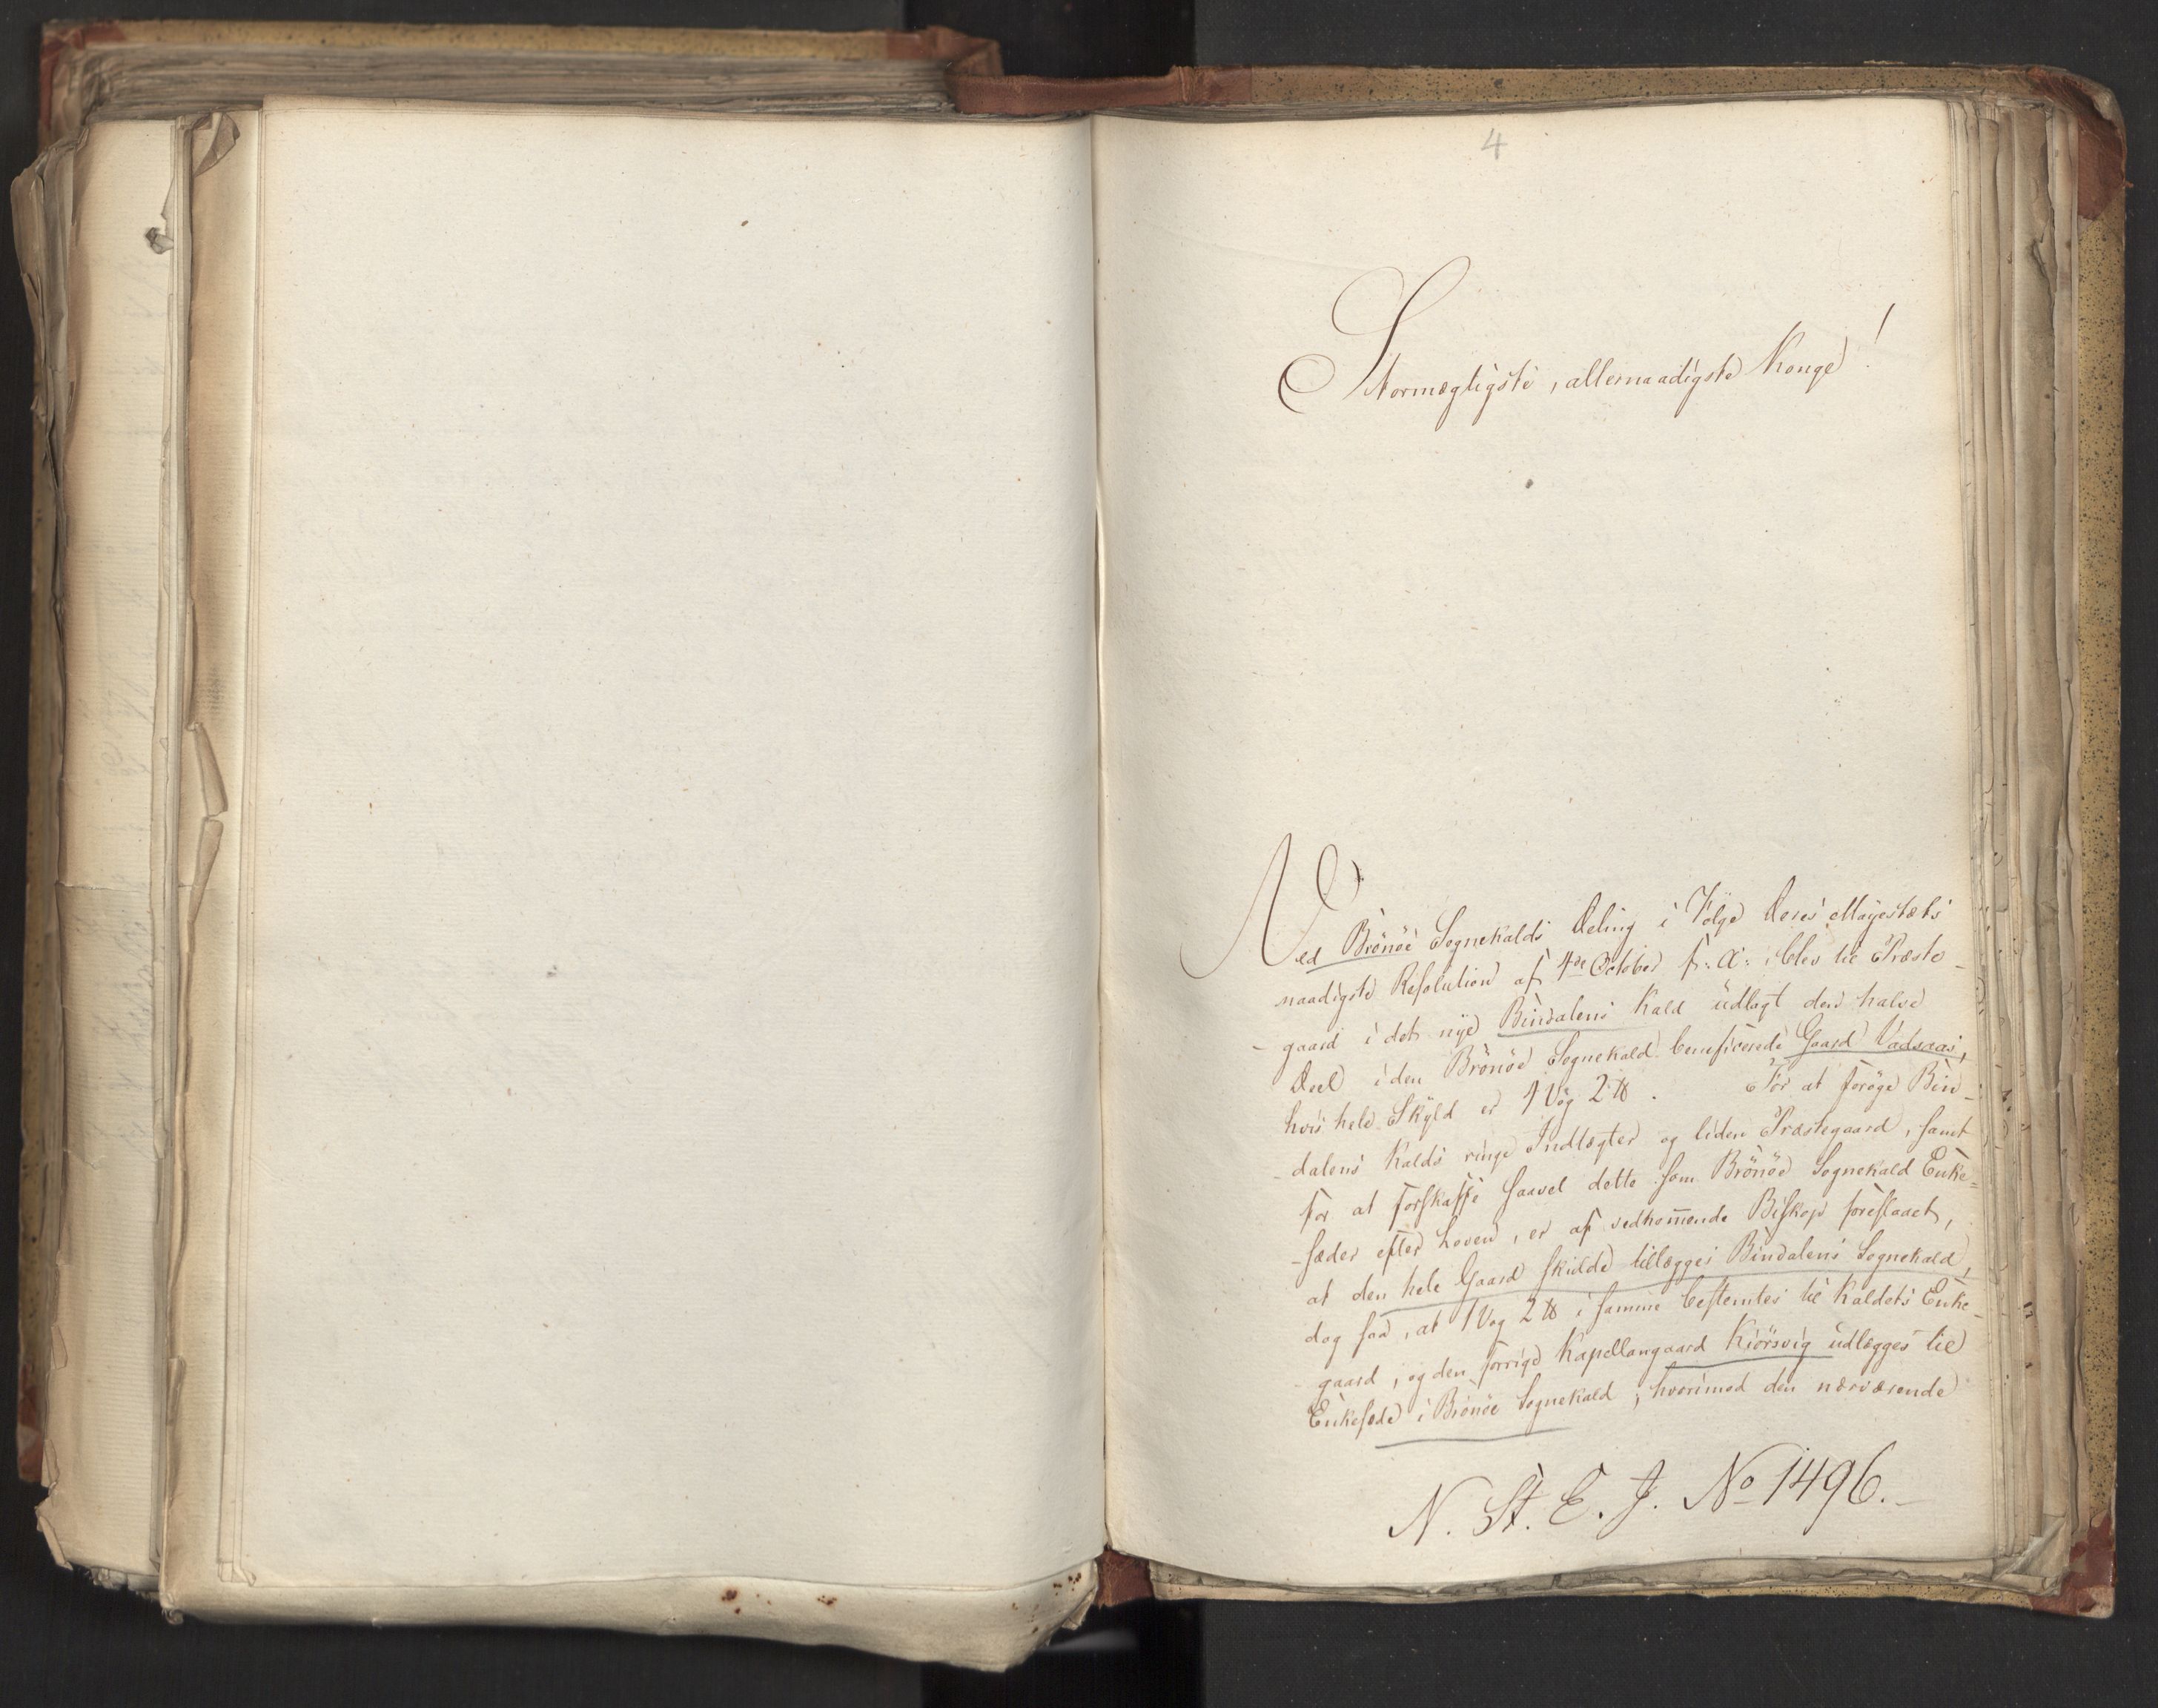 4
Stormægtigste, allernaadigste Konge!
Ved Brönöe Sognekalds Deling i Fölge Deres Majestæts
naadigste Resolution af 4de October f: A: blev til Præste-
gaard i det nye Bindalens Kald üdlagt den halve
Deel i den Brönöe Sognekald beneficerede Gaard Vadsaas,
hvis hele Skyld er 1 Vog 2 ℔. For at foröge Bin-
dalens Kalds ringe Indtægter og liden Præstegaard, samt
for at forskaffe saavel dette som Brönöe Sognekald Enke-
sæder efter Loven, er af vedkom̅ende Biskop foreslaaet,
at den hele Gaard skulde tillægges Bindalens Sognekald,
dog saa, at 1 Vog 2 ℔ i samme bestemtes til Kaldets Enke-
gaard, og den forrige Kapellangaard Kiörsvig üdlægges til
Enkesæde i Brönöe Sognekald; hvorimod den nærværende
N. St. E. J. No 1496.